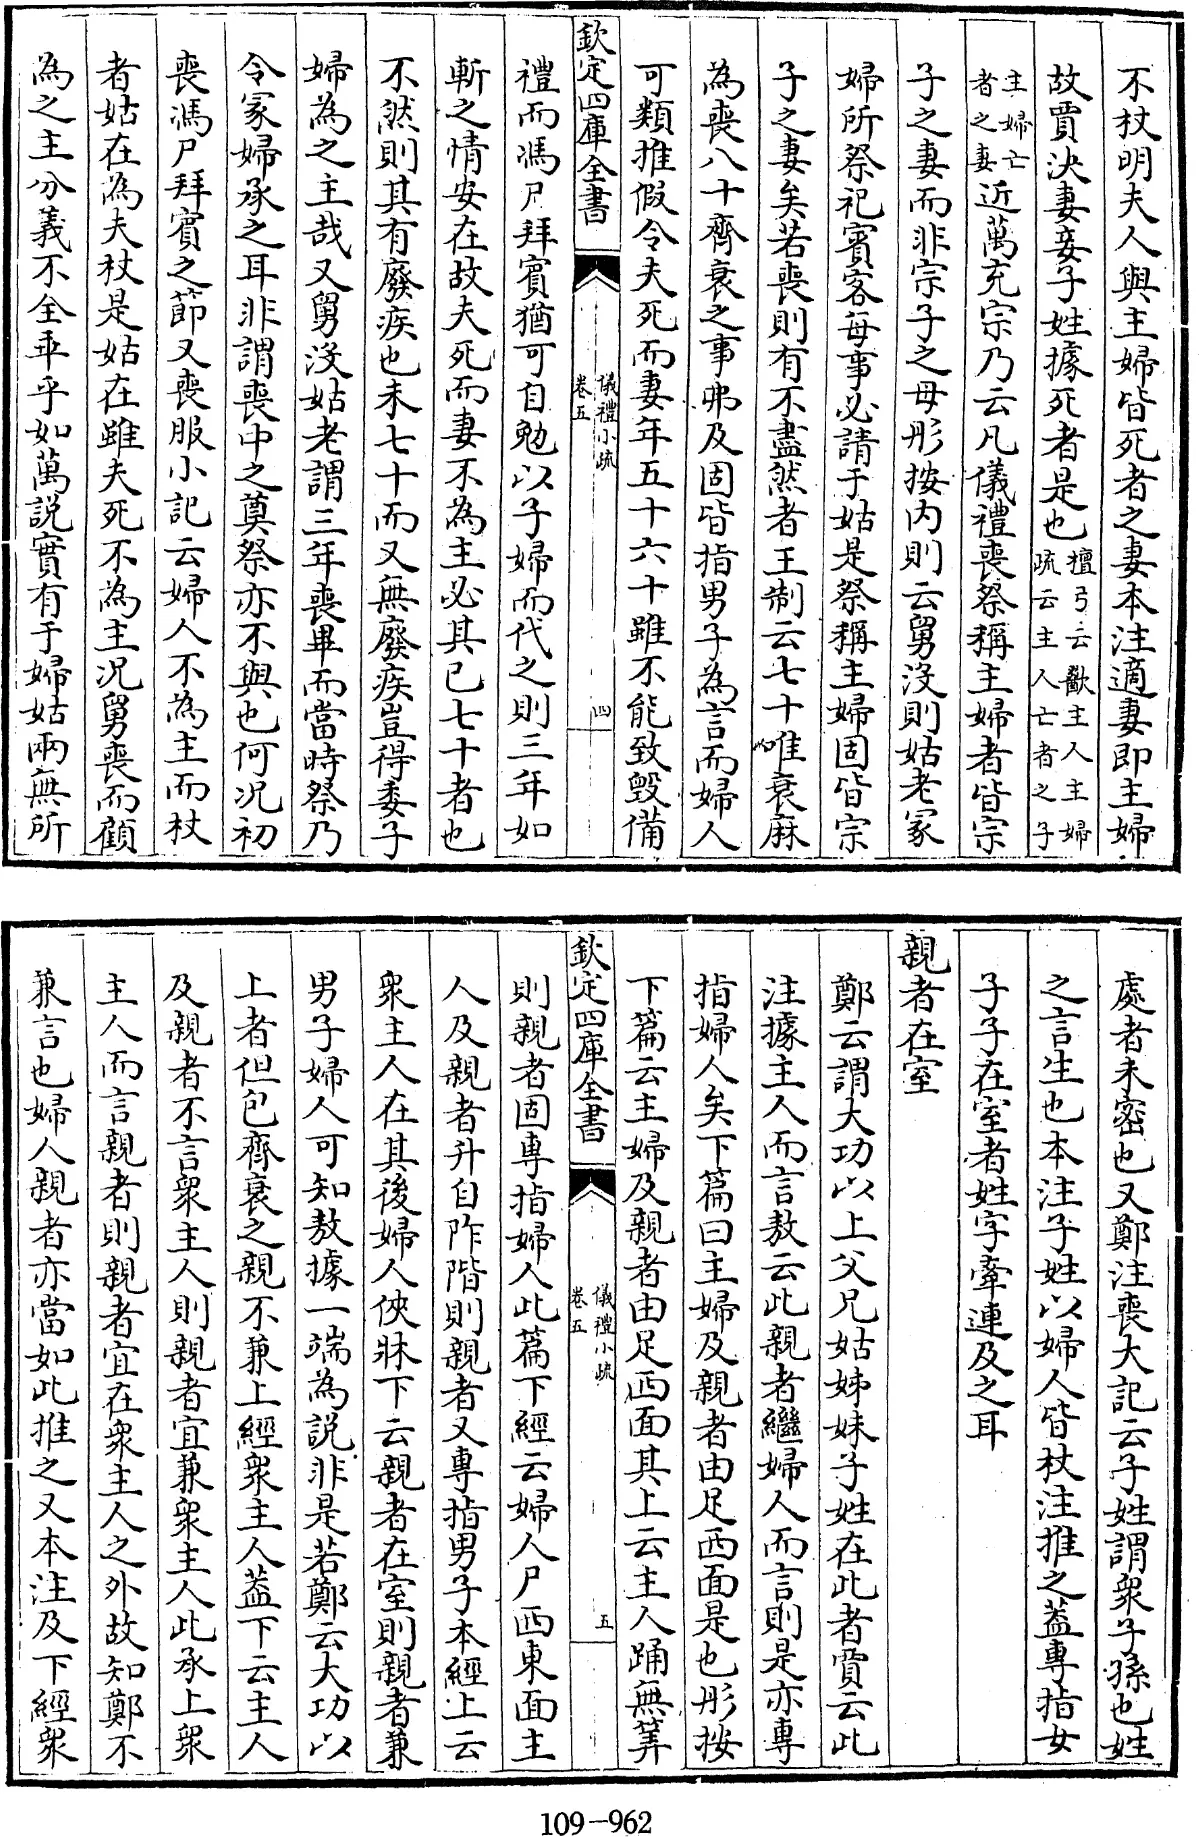 不杖明夫人與主婦皆死者之妻本注適妻即主婦
故賈決妻妾子姓據死者是也檀弓云歠主人主婦疏云主人亡者之子
主婦亡者之妻近萬充宗乃云凡儀禮喪祭稱主婦者皆宗
子之妻而非宗子之母彤按内則云舅沒則姑老冢
婦所祭祀賓客每事必請于姑是祭稱主婦固皆宗
子之妻矣若喪則有不盡然者王制云七十唯衰麻
為喪八十齊衰之事弗及固皆指男子為言而婦人
可類推假令夫死而妻年五十六十雖不能致毀備
欽定四庫全書
儀禮小疏
卷五
四
禮而馮尸拜賓猶可自勉以子婦而代之則三年如
斬之情安在故夫死而妻不為主必其已七十者也
不然則其有廢疾也未七十而又無廢疾豈得委子
婦為之主哉又舅沒姑老謂三年喪畢而當時祭乃
令冢婦承之耳非謂喪中之奠祭亦不與也何況初
喪馮尸拜賓之節又喪服小記云婦人不為主而杖
者姑在為夫杖是姑在雖夫死不為主況舅喪而顧
為之主分義不全乖乎如萬説實有于婦姑兩無所
處者未密也又鄭注喪大記云子姓謂衆子孫也姓
之言生也本注子姓以婦人皆杖注推之蓋專指女
子子在室者姓字牽連及之耳
親者在室
鄭云謂大功以上父兄姑姊妹子姓在此者賈云此
注據主人而言敖云此親者繼婦人而言則是亦專
指婦人矣下篇曰主婦及親者由足西面是也彤按
下篇云主婦及親者由足西面其上云主人踊無筭
欽定四庫全書
儀禮小疏
卷五
五
則親者固專指婦人此篇下經云婦人尸西東面主
人及親者升自阼階則親者又專指男子本經上云
衆主人在其後婦人俠牀下云親者在室則親者兼
男子婦人可知敖據一端為説非是若鄭云大功以
上者但包齊衰之親不兼上經衆主人葢下云主人
及親者不言衆主人則親者宜兼衆主人此承上衆
主人而言親者則親者宜在衆主人之外故知鄭不
兼言也婦人親者亦當如此推之又本注及下經衆
109-962